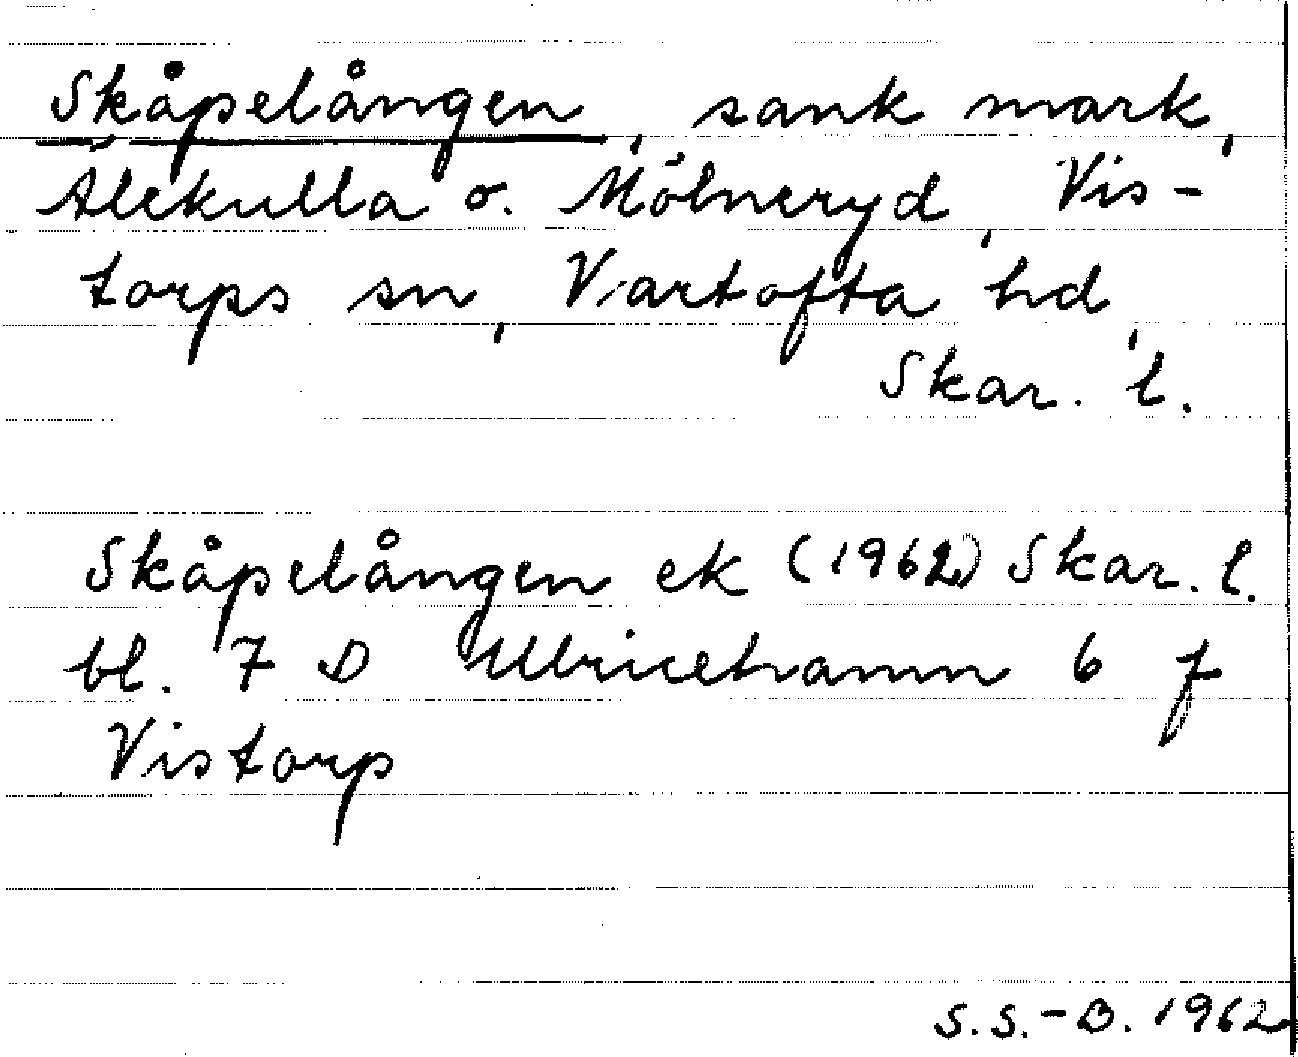 Skåpelången, sank mark,
Älekulla o. Mölneryd, Vis-
torps sn, Vartofta hd,
Skar. l.
Skåpelången ek (1962) Skar. l.
bl. 7 D Ulricehamn 6 f
Vistorp
S.S.-B. 1962